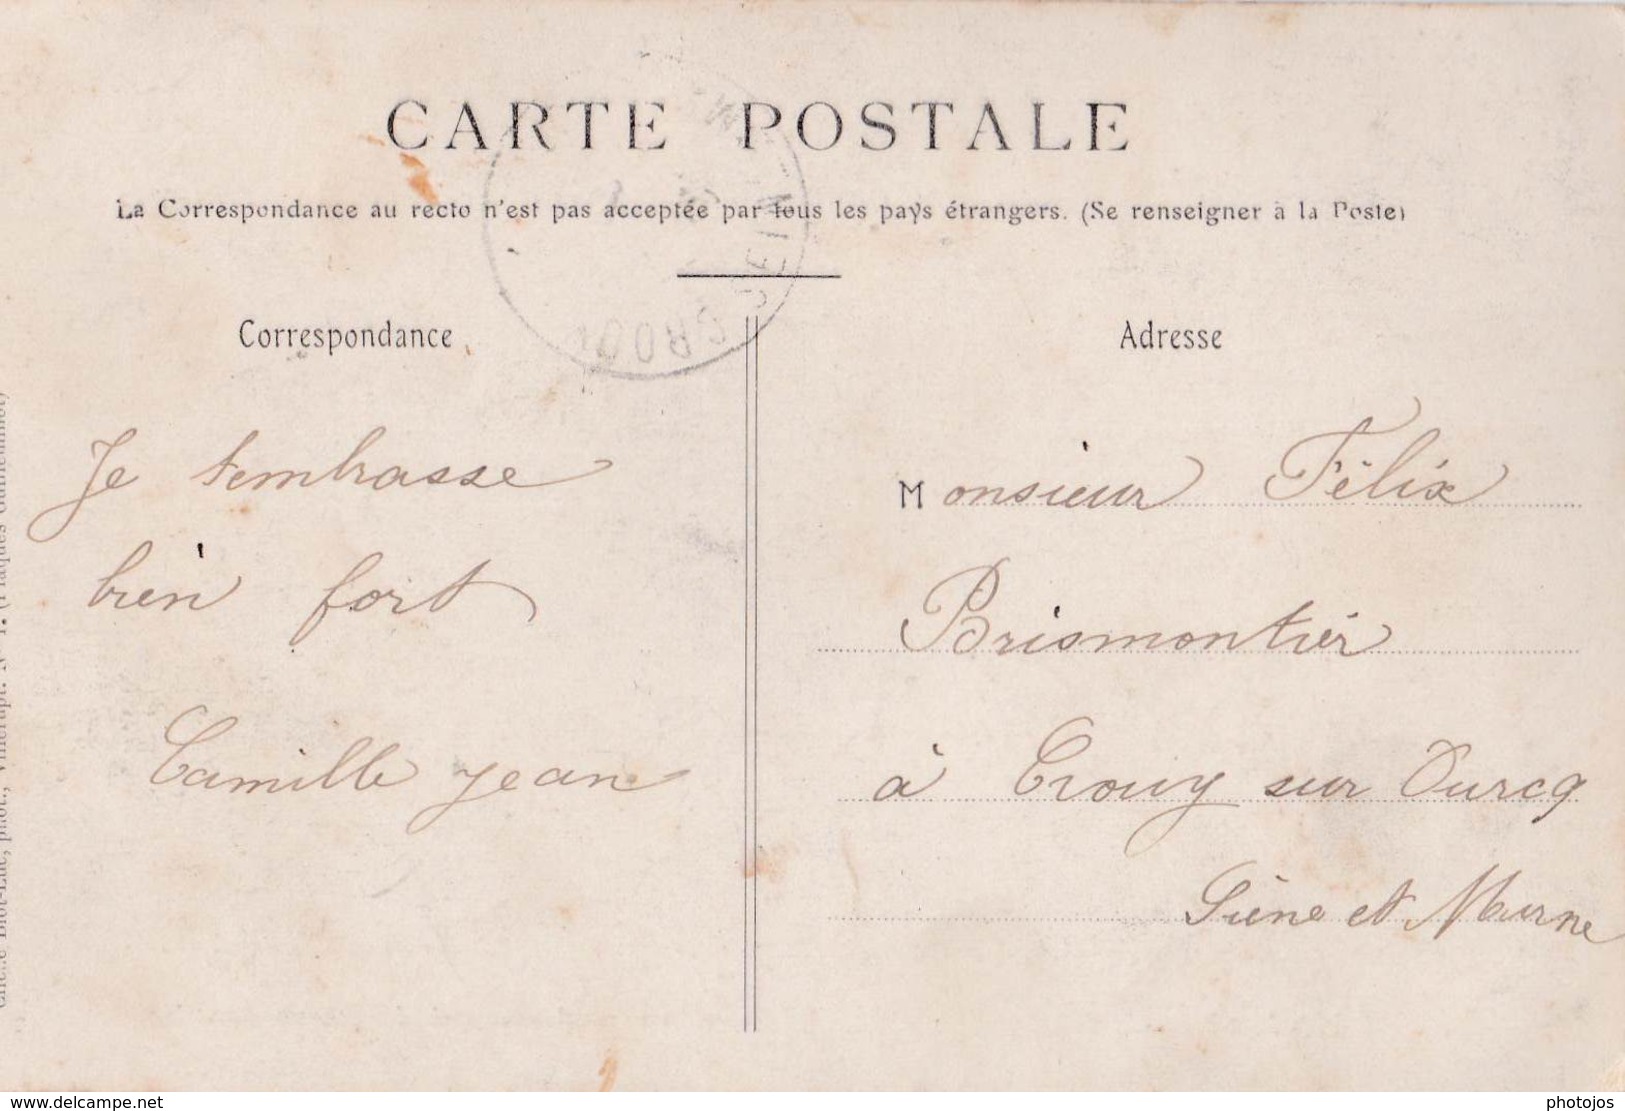 CARTE POSTALE
La Correspondance au recto n'est pas acceptée par tous les pays étrangers. (Se renseigner à la Poste)
Correspondance
Je t'embrasse
bien fort
Camille Jean
Adresse
Monsieur Félix
Brismontier
à Crouy sur Ourcq
Seine et Marne
CROUY
www.delcampe.net
photojos